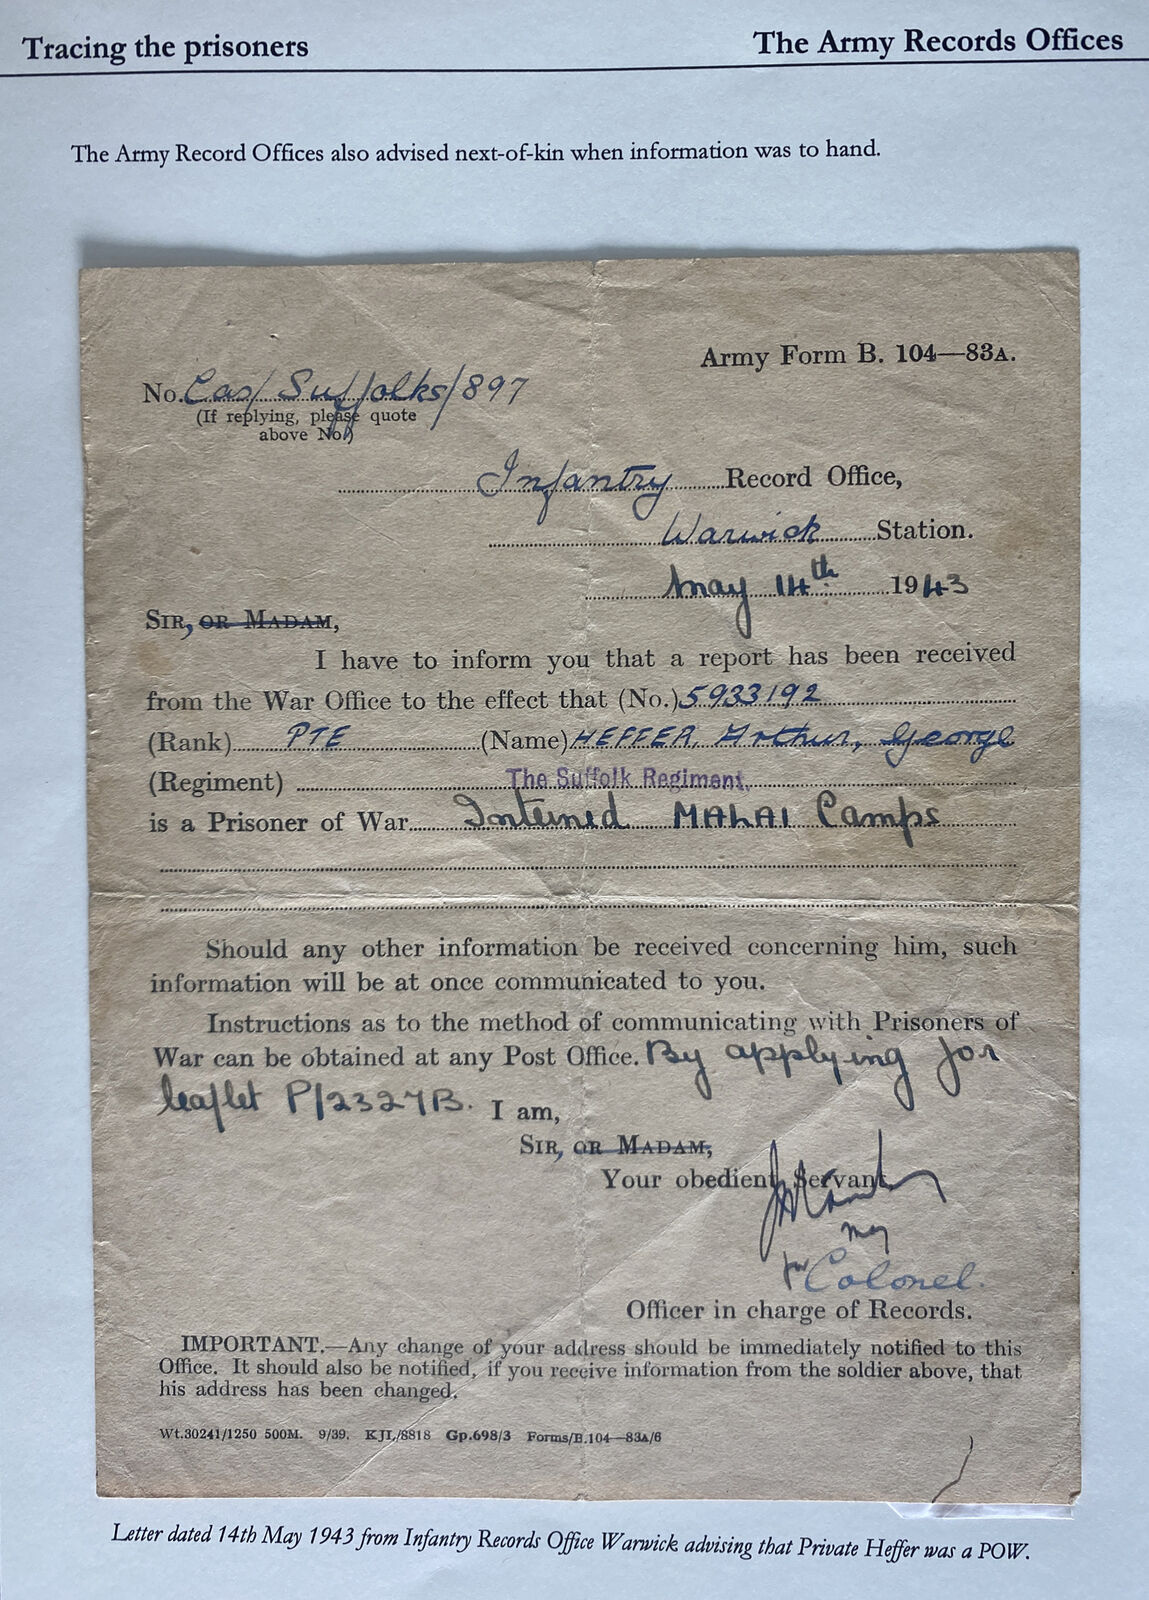 Tracing the prisoners
The Army Records Offices
The Army Record Offices also advised next-of-kin when information was to hand.
Army Form B. 104—83A.
No. Cas/Suffolks/897
(If replying, please quote
above No.)
Infantry Record Office,
Warwick Station.
May 14th 1943
SIR, OR MADAM,
I have to inform you that a report has been received
from the War Office to the effect that (No.) 5933192
(Rank) PTE (Name) HEFFER, Arthur, George
(Regiment) The Suffolk Regiment.
is a Prisoner of War Interned MALAI Camps
Should any other information be received concerning him, such
information will be at once communicated to you.
Instructions as to the method of communicating with Prisoners of
War can be obtained at any Post Office. By applying for
leaflet P/2327B. I am,
SIR, OR MADAM,
Your obedient Servant
for Colonel.
Officer in charge of Records.
IMPORTANT.—Any change of your address should be immediately notified to this
Office. It should also be notified, if you receive information from the soldier above, that
his address has been changed.
Wt.30241/1250 500M. 9/39. KJL/8818 Gp.698/3 Forms/B.104—83A/6
Letter dated 14th May 1943 from Infantry Records Office Warwick advising that Private Heffer was a POW.